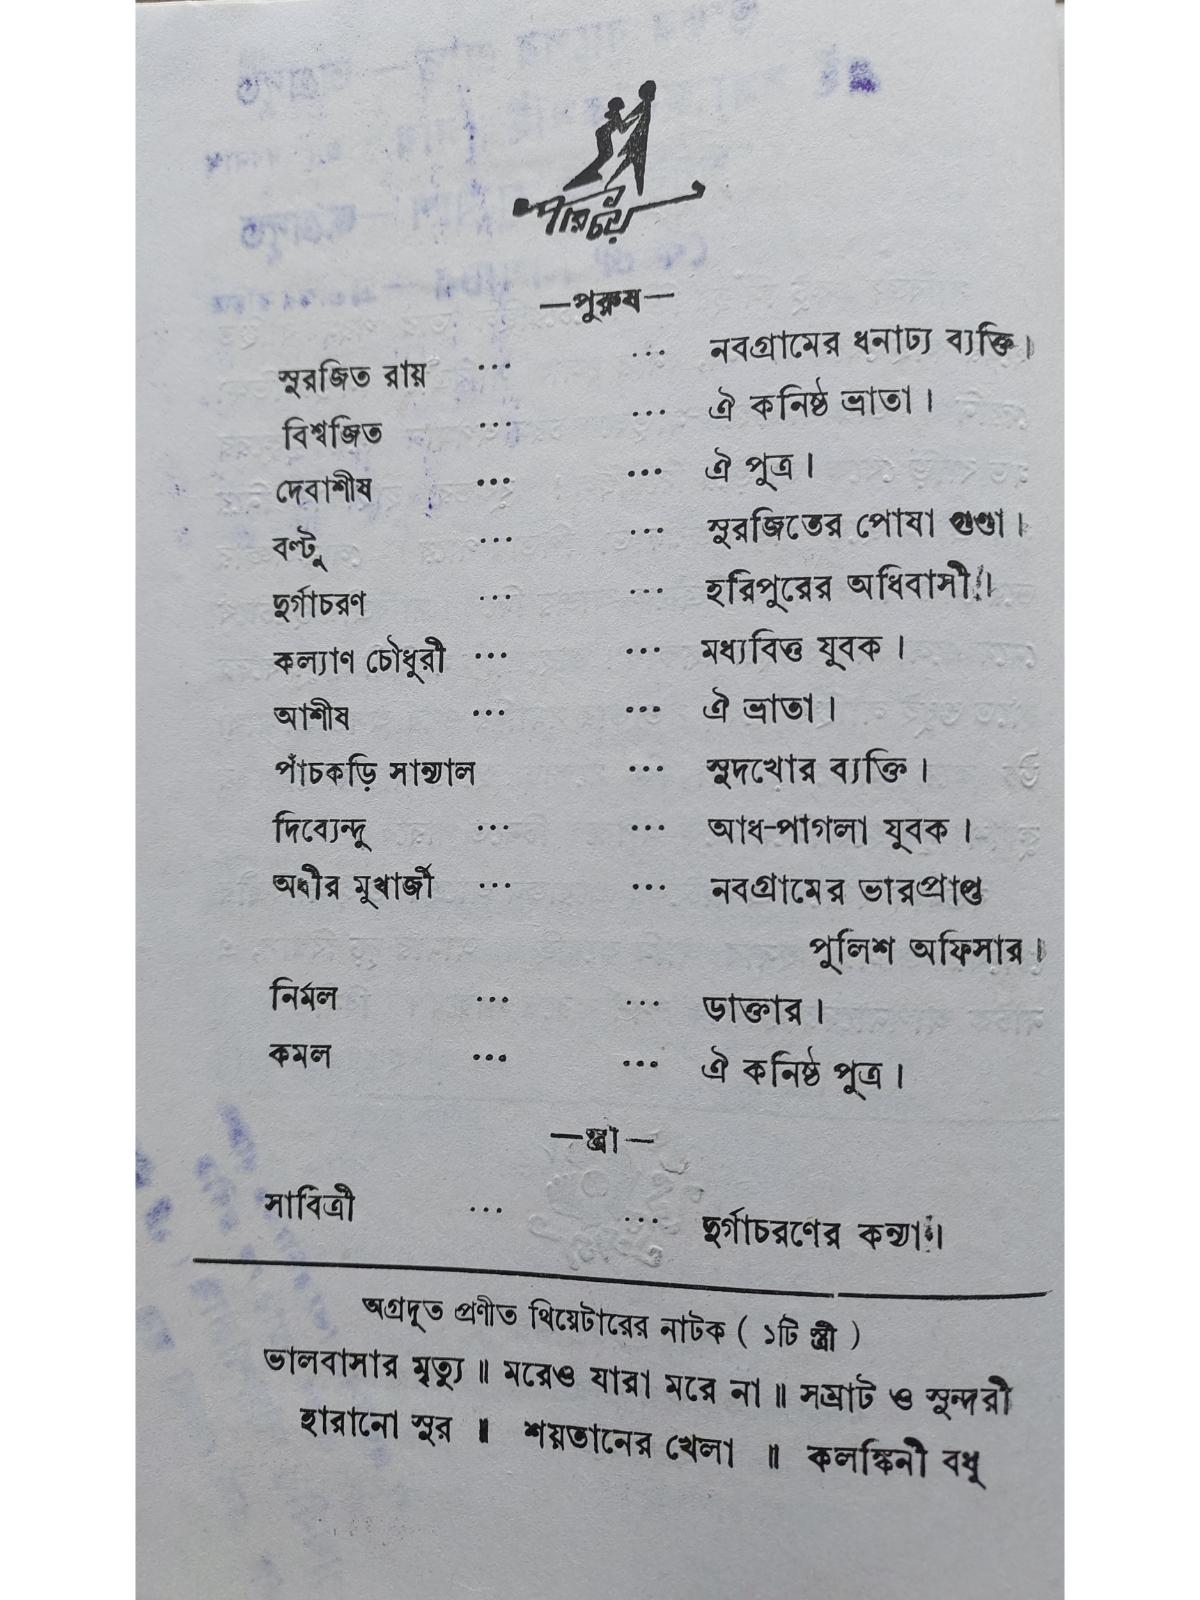 পরিচয়
—পুরুষ—
সুরজিত রায় ... ... নবগ্রামের ধনাঢ্য ব্যক্তি।
বিশ্বজিত ... ... ঐ কনিষ্ঠ ভ্রাতা।
দেবাশীষ ... ... ঐ পুত্র।
বল্টু ... ... সুরজিতের পোষা গুণ্ডা।
দুর্গাচরণ ... ... হরিপুরের অধিবাসী।
কল্যাণ চৌধুরী ... ... মধ্যবিত্ত যুবক।
আশীষ ... ... ঐ ভ্রাতা।
পাঁচকড়ি সান্যাল ... সুদখোর ব্যক্তি।
দিব্যেন্দু ... ... আধ-পাগলা যুবক।
অধীর মুখার্জী ... ... নবগ্রামের ভারপ্রাপ্ত
পুলিশ অফিসার।
নির্মল ... ... ডাক্তার।
কমল ... ... ঐ কনিষ্ঠ পুত্র।
—স্ত্রী—
সাবিত্রী ... ... দুর্গাচরণের কন্যা।
অগ্রদূত প্রণীত থিয়েটারের নাটক ( ১টি স্ত্রী )
ভালবাসার মৃত্যু ॥ মরেও যারা মরে না ॥ সম্রাট ও সুন্দরী
হারানো সুর ॥ শয়তানের খেলা ॥ কলঙ্কিনী বধূ